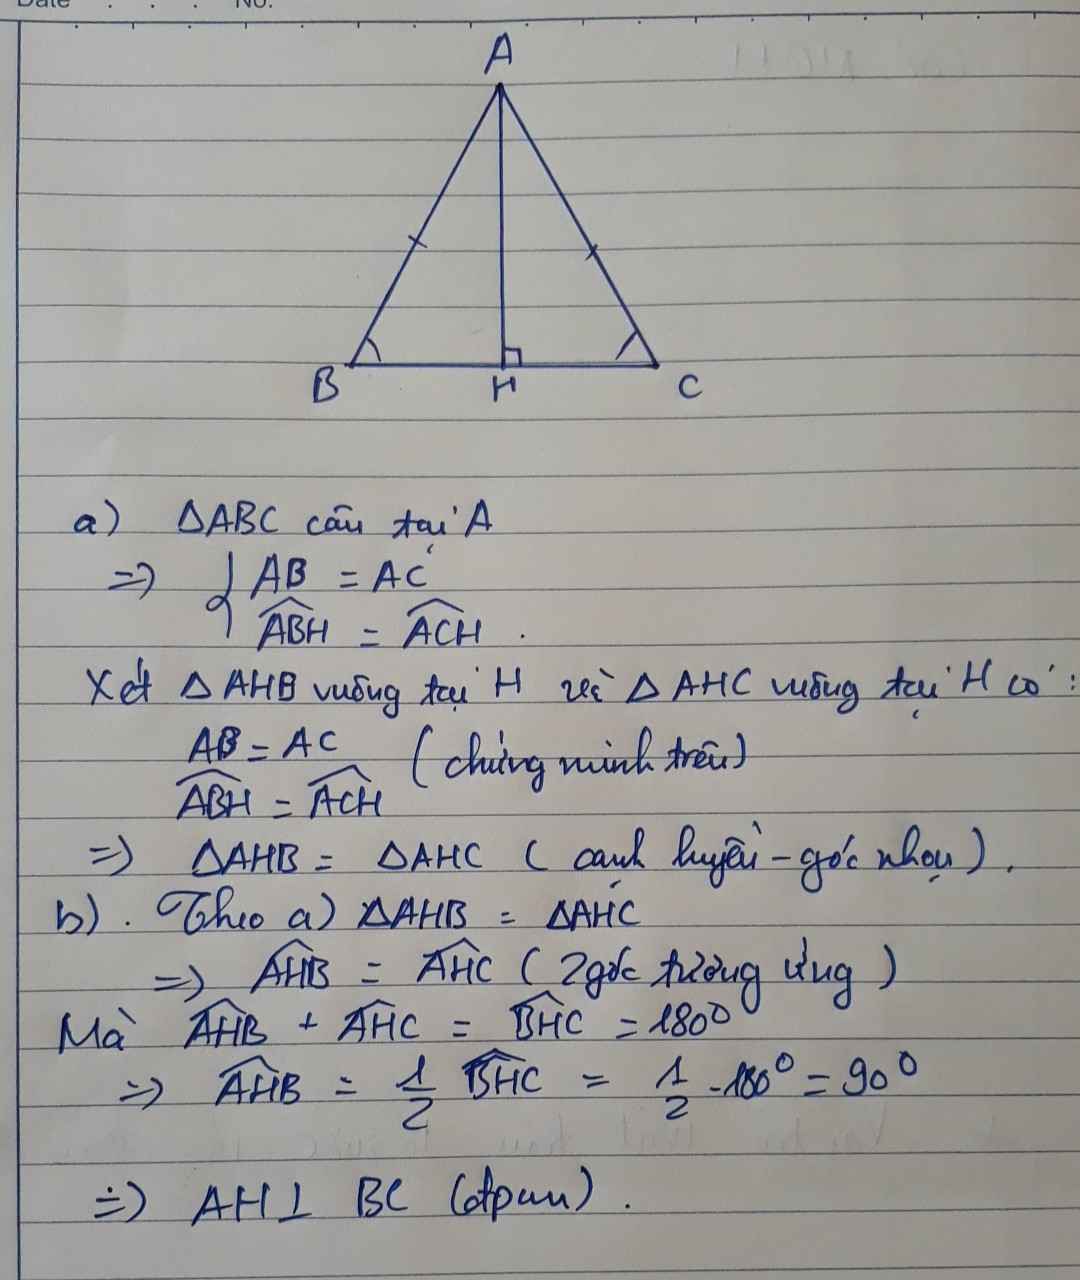 Date . . . No.
A
B
H
C
a) ΔABC cân tại A
=> { AB = AC
ABH = ACH .
Xét ΔAHB vuông tại H và ΔAHC vuông tại H có :
AB = AC (chứng minh trên)
ABH = ACH
=> ΔAHB = ΔAHC ( cạnh huyền - góc nhọn ) .
b) . Theo a) ΔAHB = ΔAHC
=> AHB = AHC ( 2 góc tương ứng )
Mà AHB + AHC = BHC = 180⁰
=> AHB = 1/2 BHC = 1/2 . 180⁰ = 90⁰
=> AH ⊥ BC (đpcm) .